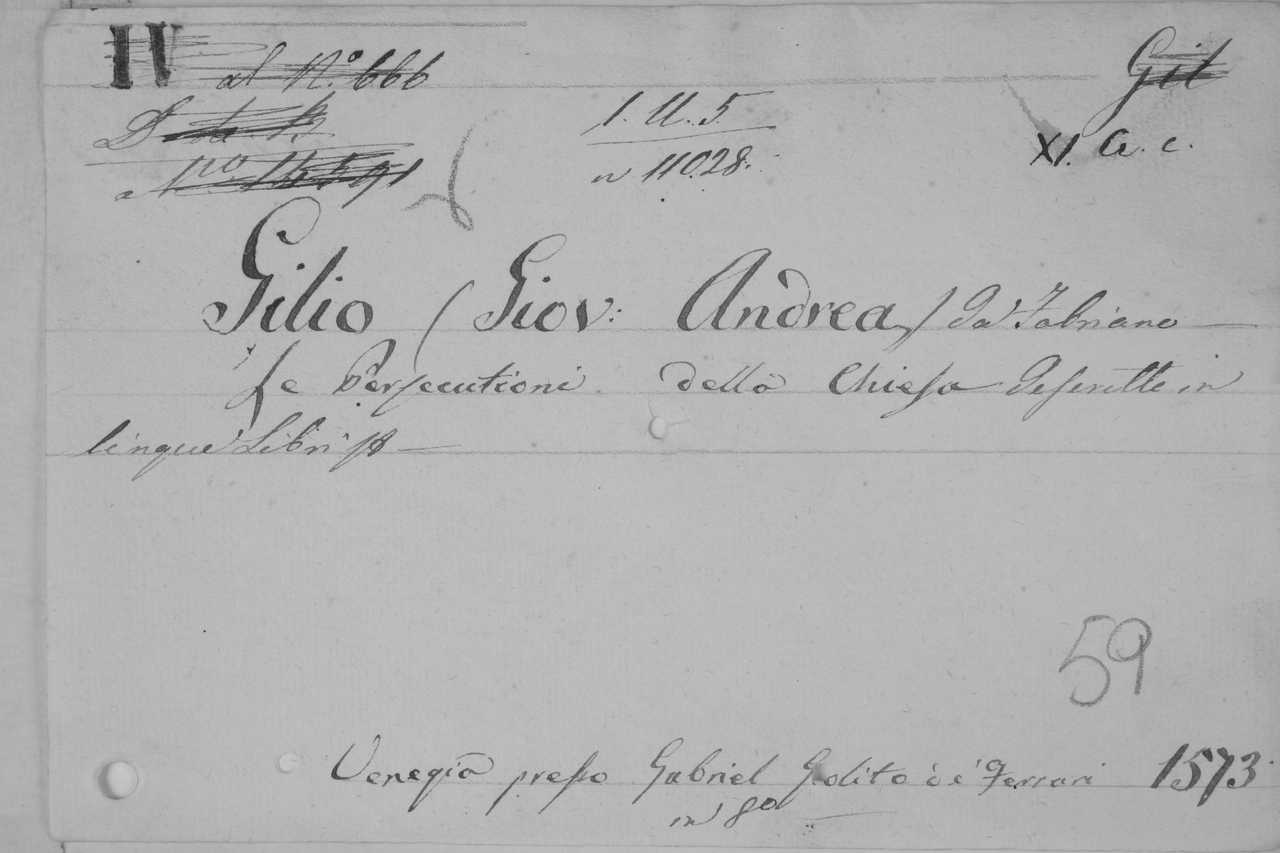 IV al N.º 666
Gil
1. U. 5
XI. a. c.
n 11028.
Gilio (Giov: Andrea) da Fabriano
Le Persecutioni della Chiesa descritte in
cinque Libri
59
Venegia presso Gabriel Golito de Ferrari 1573
in 8º